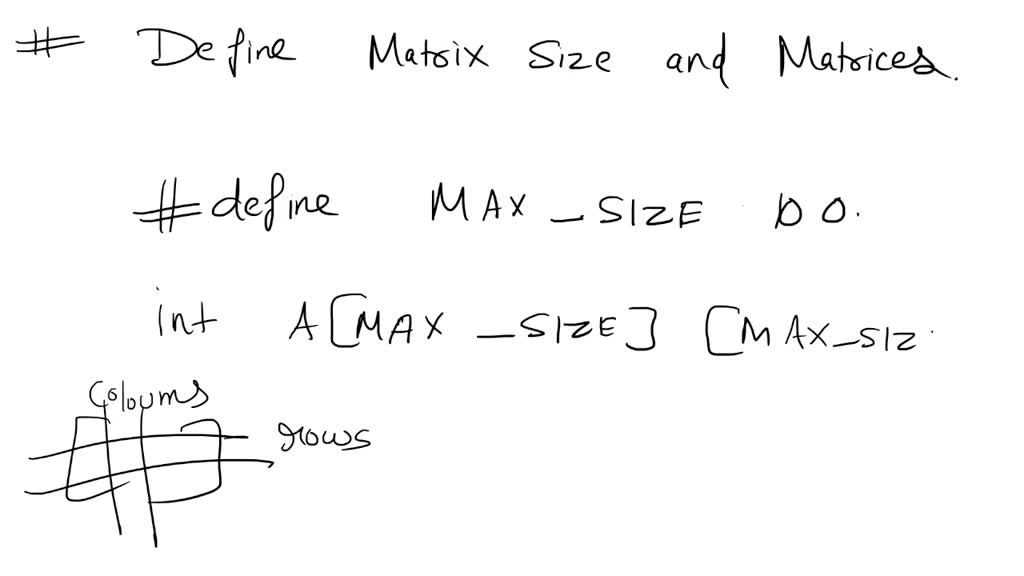 # Define Matrix Size and Matrices.
#define MAX_SIZE
int A[MAX_SIZE] [MAX_SIZ
Coloums
rows